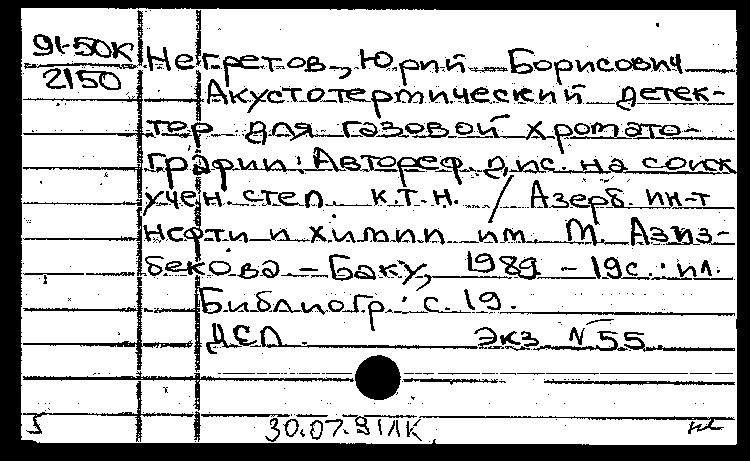 91-50К
2150
Негретов, Юрий Борисович
Акустотермический детек-
тер для газовой хромато-
графии: Автореф. дис. на соиск
учен. степ. к.т.н. / Азерб. ин-т
нефти и химии им. М. Азиз-
бекова. – Баку, 1989. – 19с.: ил.
Библиогр.: с. 19.
ДСП. Экз. N 55.
30.07.91ЛК